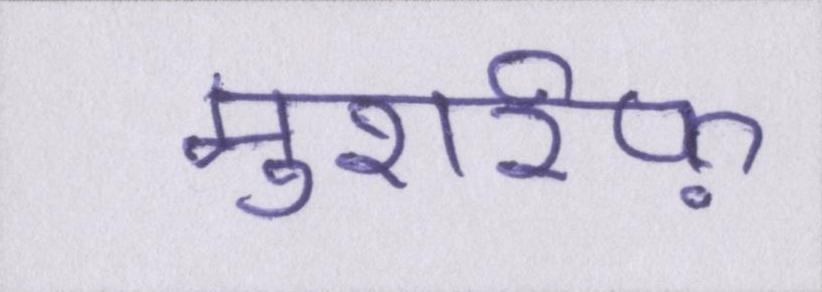 मुशर्रफ़